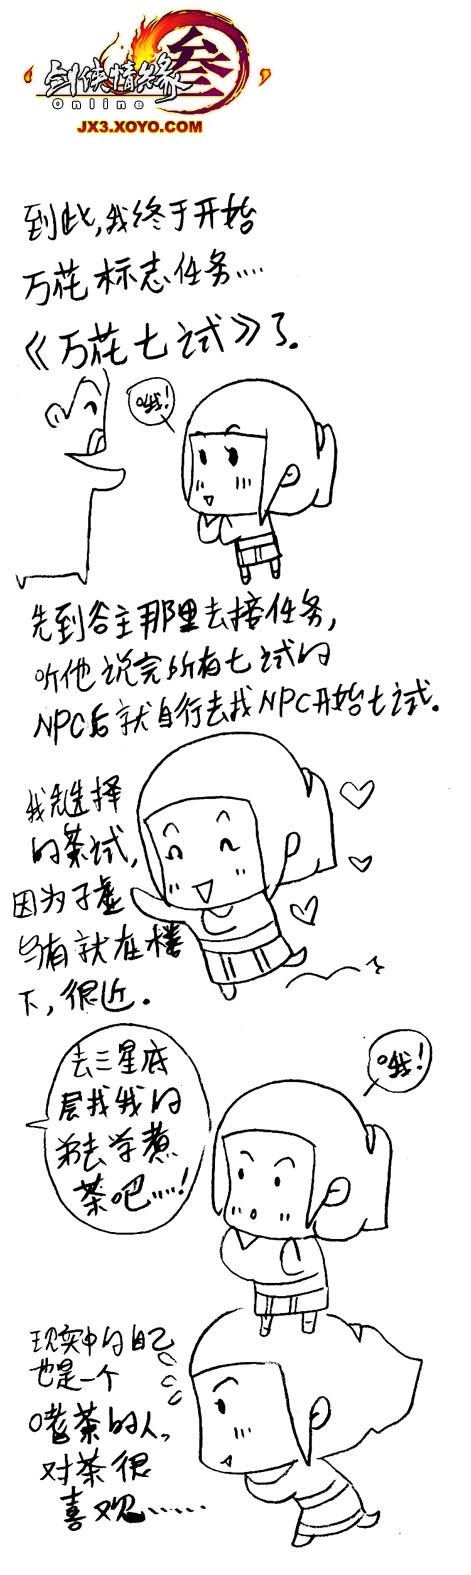 剑侠情缘叁
Online
JX3.XOYO.COM
到此,我终于开始
万花标志任务....
《万花七试》了.
哦!
先到谷主那里去接任务,
听他说完所有七试的
NPC后就自行去找NPC开始七试.
我先选择
的茶试,
因为子虚
乌有就在楼
下,很近.
去三星底
层找我的
弟去学煮
茶吧....!
哦!
现实中的自己
也是一个
嗜茶的人,
对茶很
喜欢......